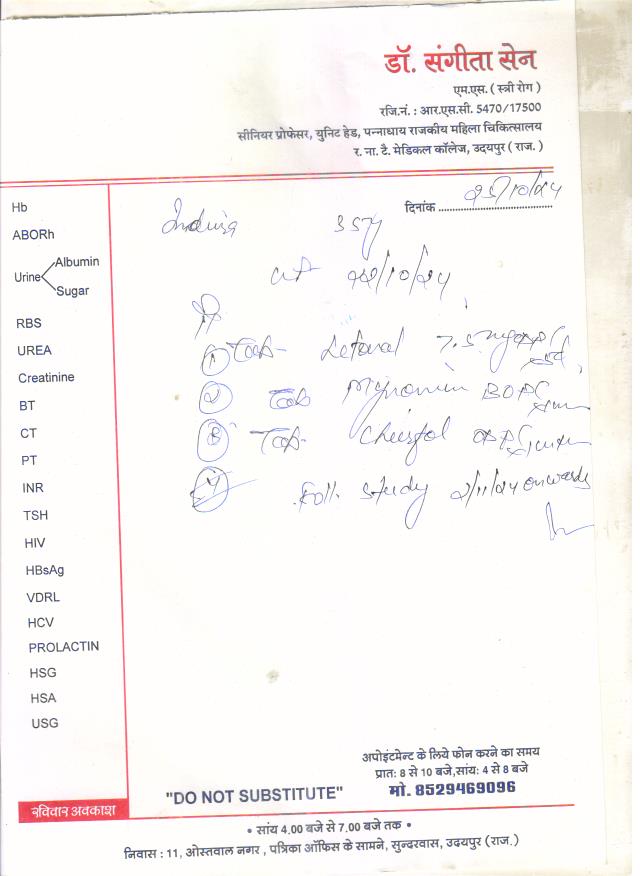 डॉ. संगीता सेन
एम.एस. ( स्त्री रोग )
रजि.नं. : आर.एस.सी. 5470/17500
सीनियर प्रोफेसर, युनिट हेड, पन्नाधाय राजकीय महिला चिकित्सालय
र. ना. टै. मेडिकल कॉलेज, उदयपुर ( राज. )
दिनांक 25/10/24
Hb
ABORh
Urine Albumin
Sugar
RBS
UREA
Creatinine
BT
CT
PT
INR
TSH
HIV
HBsAg
VDRL
HCV
PROLACTIN
HSG
HSA
USG
22/10/24
① Tab- 7.5mg
② Tab BDPC
③ Tab-
④ Foll. study 2/11/24 onwards
अपोइंटमेन्ट के लिये फोन करने का समय
प्रात: 8 से 10 बजे,सांय: 4 से 8 बजे
"DO NOT SUBSTITUTE" मो. 8529469096
रविवार अवकाश
• सांय 4.00 बजे से 7.00 बजे तक •
निवास : 11, ओस्तवाल नगर , पत्रिका ऑफिस के सामने, सुन्दरवास, उदयपुर (राज.)